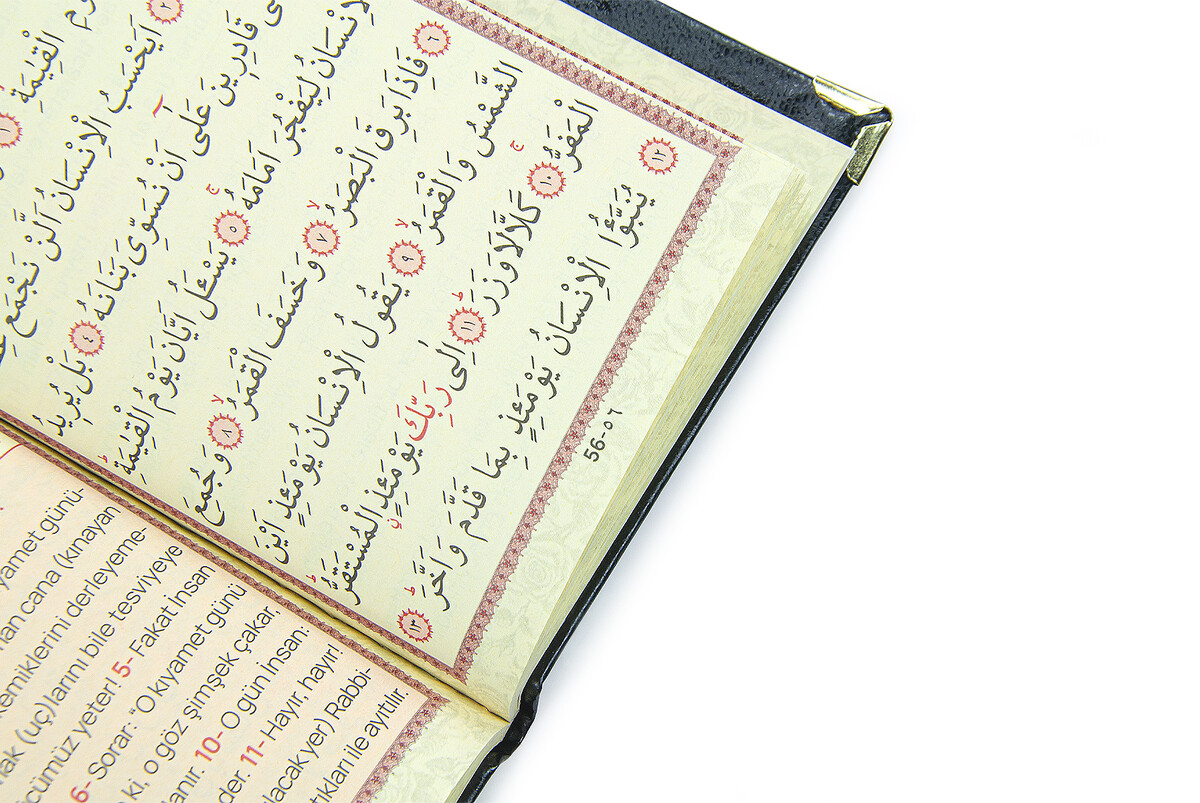 الْقِيٰمَةِۙ ١
٢ اَيَحْسَبُ الْاِنْسَانُ اَلَّنْ نَجْمَعَ
قَادِرِينَ عَلٰٓى اَنْ نُسَوِّىَ بَنَانَهُ ٤ بَلْ يُرِيدُ
الْاِنْسَانُ لِيَفْجُرَ اَمَامَهُۚ ٥ يَسْـَٔلُ اَيَّانَ يَوْمُ الْقِيٰمَةِۜ
٦ فَاِذَا بَرِقَ الْبَصَرُۙ ٧ وَخَسَفَ الْقَمَرُۙ ٨ وَجُمِعَ
الشَّمْسُ وَالْقَمَرُۙ ٩ يَقُولُ الْاِنْسَانُ يَوْمَئِذٍ اَيْنَ
الْمَفَرُّۚ ١٠ كَلَّا لَا وَزَرَۜ ١١ اِلٰى رَبِّكَ يَوْمَئِذٍۨ الْمُسْتَقَرُّۜ
١٢ يُنَبَّؤُا الْاِنْسَانُ يَوْمَئِذٍ بِمَا قَدَّمَ وَاَخَّرَۜ ١٣
56-٥٦
yamet günü-
cana (kınayan
kemiklerini derleyeme-
(uç)larını bile tesviyeye
yeter! 5- Fakat insan
6- Sorar: "O kıyamet günü
ki, o göz şimşek çakar,
10- O gün insan:
11- Hayır, hayır!
yer) Rabbi-
ile ayıtılır.